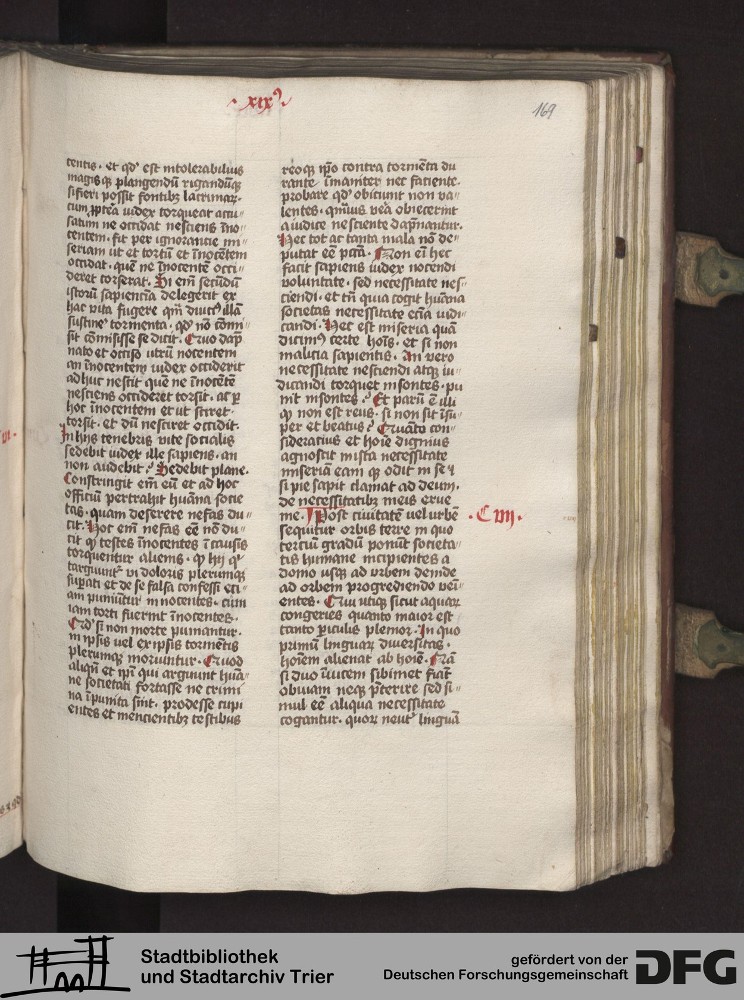 xixꝰ
169
tentis · et qd' est intolerabilius
magisqꝫ plangendū rigandūqꝫ
si fieri possit fontibꝫ lacrimaꝝ ·
cum ꝓpt̄ea iudex torqueat accu⸗
satum ne occidat nesciens īno⸗
centem · fit per ignorantie mi⸗
seriam ut et tortū et īnocētem
occidat · quē ne īnocentē occi⸗
deret torserat · Si em̄ secūdū
istorū sapienciā delegerit ex
hac vita fugere qm̄ diuciꝰ illa
sustīe' tormenta · qd' nō cōmi⸗
sit cōmisisse se dicit · Quo dāp
nato et occiso utrū nocentem
an īnocentem iudex occiderit
adhuc nescit quē ne īnocētē
nesciens occideret torsit · ac ꝑ
hoc īnocentem et ut sciret ·
torsit · et dū nesciret occidit ·
In hijs tenebris vite socialis
sedebit iudex ille sapiens · an
non audebit ? Sedebit plane ·
Constringit em̄ eū et ad hoc
officiū pertrahit huāna socie
tas · quam deserere nefas du⸗
cit · Hoc em̄ nefas eē nō du⸗
cit qꝫ testes īnocentes ī causis
torquentur alienis · qꝫ hij qͥ
arguunt' vi doloris plerumqꝫ
suꝑati et de se falsa confessi eci⸗
am puniūtur innocentes · cum
iam torti fuerint īnocentes ·
Qd' si non morte puniantur ·
in ipsis uel ex ipsis tormētis
plerumqꝫ moriuntur · Quod
aliqn̄ et ip̄i qui arguunt huā⸗
ne societati fortasse ne crimi
na īpunita sint · prodesse cupi
entes et mencientibꝫ testibus
reoqꝫ ip̄o contra tormēta du
rante īmaniter nec faciente ·
probare qd' obiciunt non va⸗
lentes · qm̄uis vera obiecerint
a iudice nesciente dāpnantur ·
Hec tot ac tanta mala nō de⸗
putat eē pcc̄a · Non em̄ hec
facit sapiens iudex nocendi
voluntate · sed necessitate nes⸗
ciendi · et tn̄ quia cogit huāna
societas necessitate ecīa iudi⸗
candi · Hec est miseria quā
dicimꝰ certe hoīs · et si non
malicia sapientis · An vero
necessitate nesciendi atqꝫ iu⸗
dicandi torquet insontes · pu
nit insontes ? Et parū ē illi
qꝫ non est reus · si non sit īsu⸗
per et beatus ? Quāto con⸗
sideracius et hoīe dignius
agnoscit in ista necessitate
miseriā eam qꝫ odit in se ⁊
si pie sapit clamat ad deum ·
de necessitatibꝫ meis erue
me · Post ciuitatē vel urbē
sequitur orbis terre in quo
terciū gradū ponūt societa⸗
tis humane incipientes a
domo usqꝫ ad vrbem deinde
ad orbem progrediendo veī⸗
entes · Qui utiqꝫ sicut aquaꝝ
congeries quanto maior est
tanto ꝑiculis plenior · In quo
primū linguaꝝ diuersitas ·
hoīem alienat ab hoīe · Nā
si duo īuicem sibimet fiāt
obuiam neqꝫ p̄terire sed si⸗
mul eē aliqua necessitate
cogantur · quoꝝ neut' linguā
· C vij ·